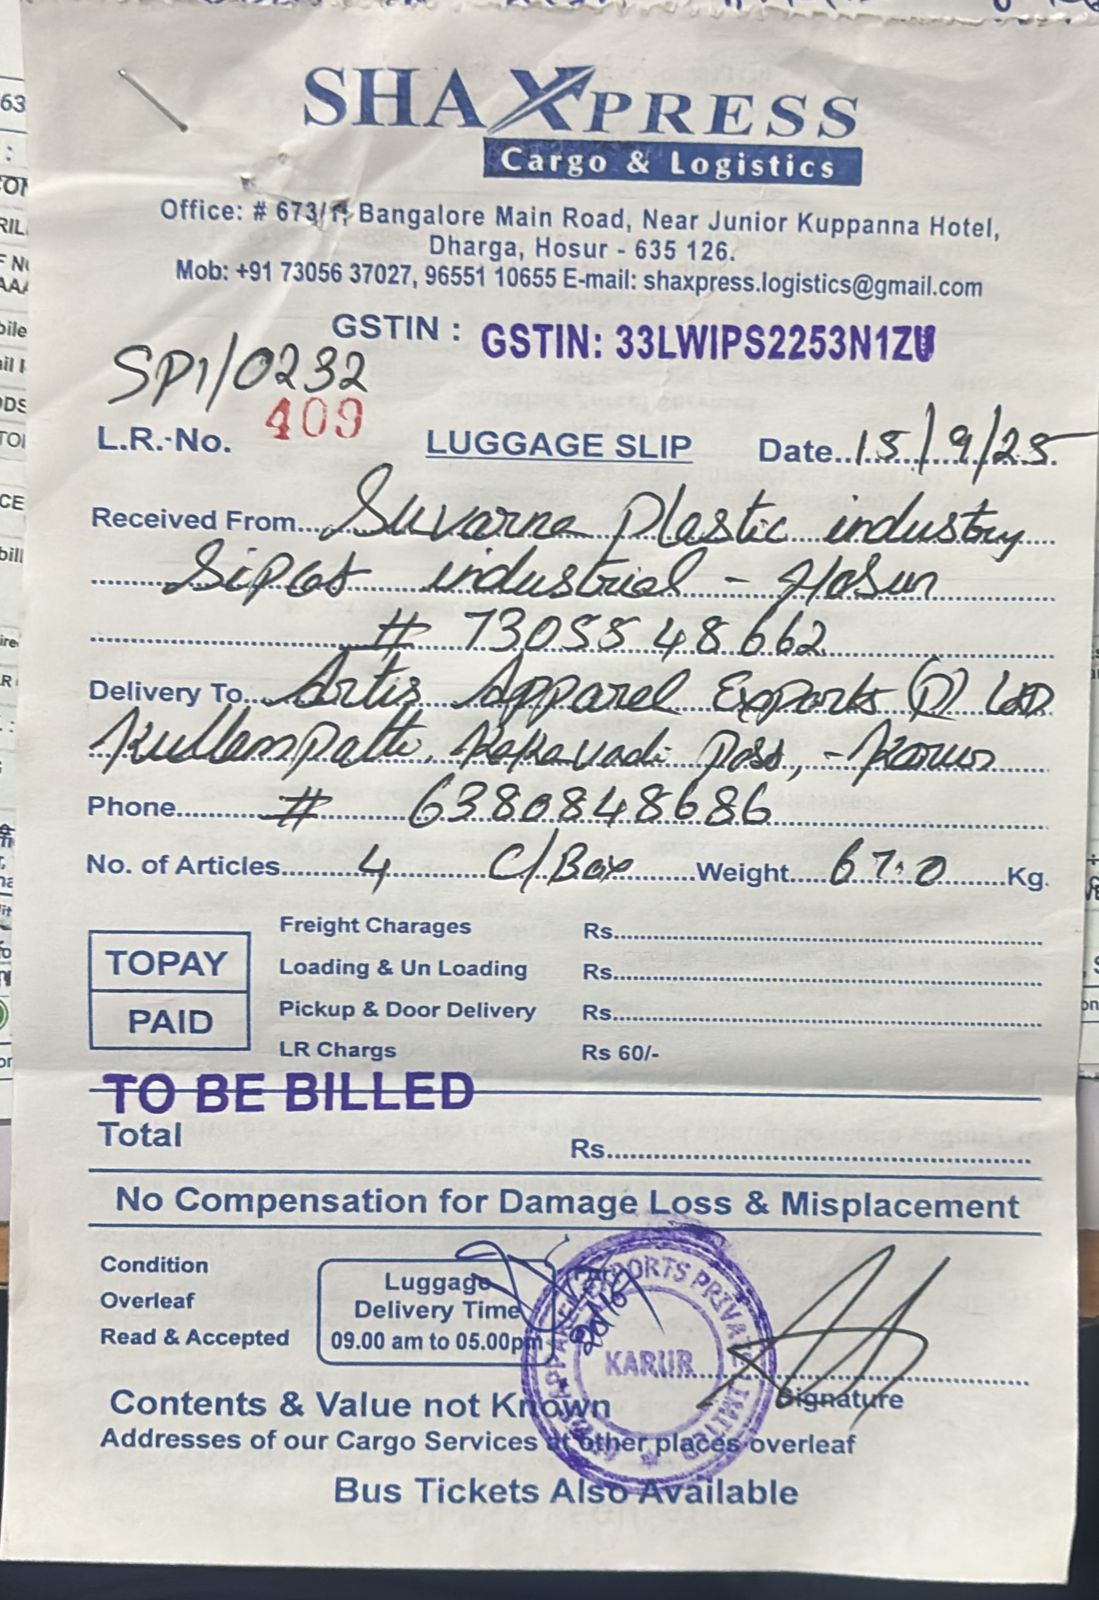 SHAXPRESS
Cargo & Logistics
Office: # 673/1, Bangalore Main Road, Near Junior Kuppanna Hotel,
Dharga, Hosur - 635 126.
Mob: +91 73056 37027, 96551 10655 E-mail: shaxpress.logistics@gmail.com
GSTIN : GSTIN: 33LWIPS2253N1ZU
SP1/0232
409
L.R.-No. LUGGAGE SLIP Date..15/9/25
Received From...Suvarna Plastic industry
Sipcot industrial - Hosur
# 7305548662
Delivery To...Artis Apparel Exports (P) Ltd
Karur
Phone......# 6380848686
No. of Articles......4 C/Box Weight.....67.0 Kg.
Freight Charages Rs.
TOPAY
Loading & Un Loading Rs.
Pickup & Door Delivery Rs.
PAID
LR Chargs Rs 60/-
TO BE BILLED
Total Rs.
No Compensation for Damage Loss & Misplacement
Condition
Overleaf
Read & Accepted
Luggage
Delivery Time
09.00 am to 05.00pm
APPAREL EXPORTS PRIVATE LIMITED
KARUR
Signature
Contents & Value not Known
Addresses of our Cargo Services at other places overleaf
Bus Tickets Also Available